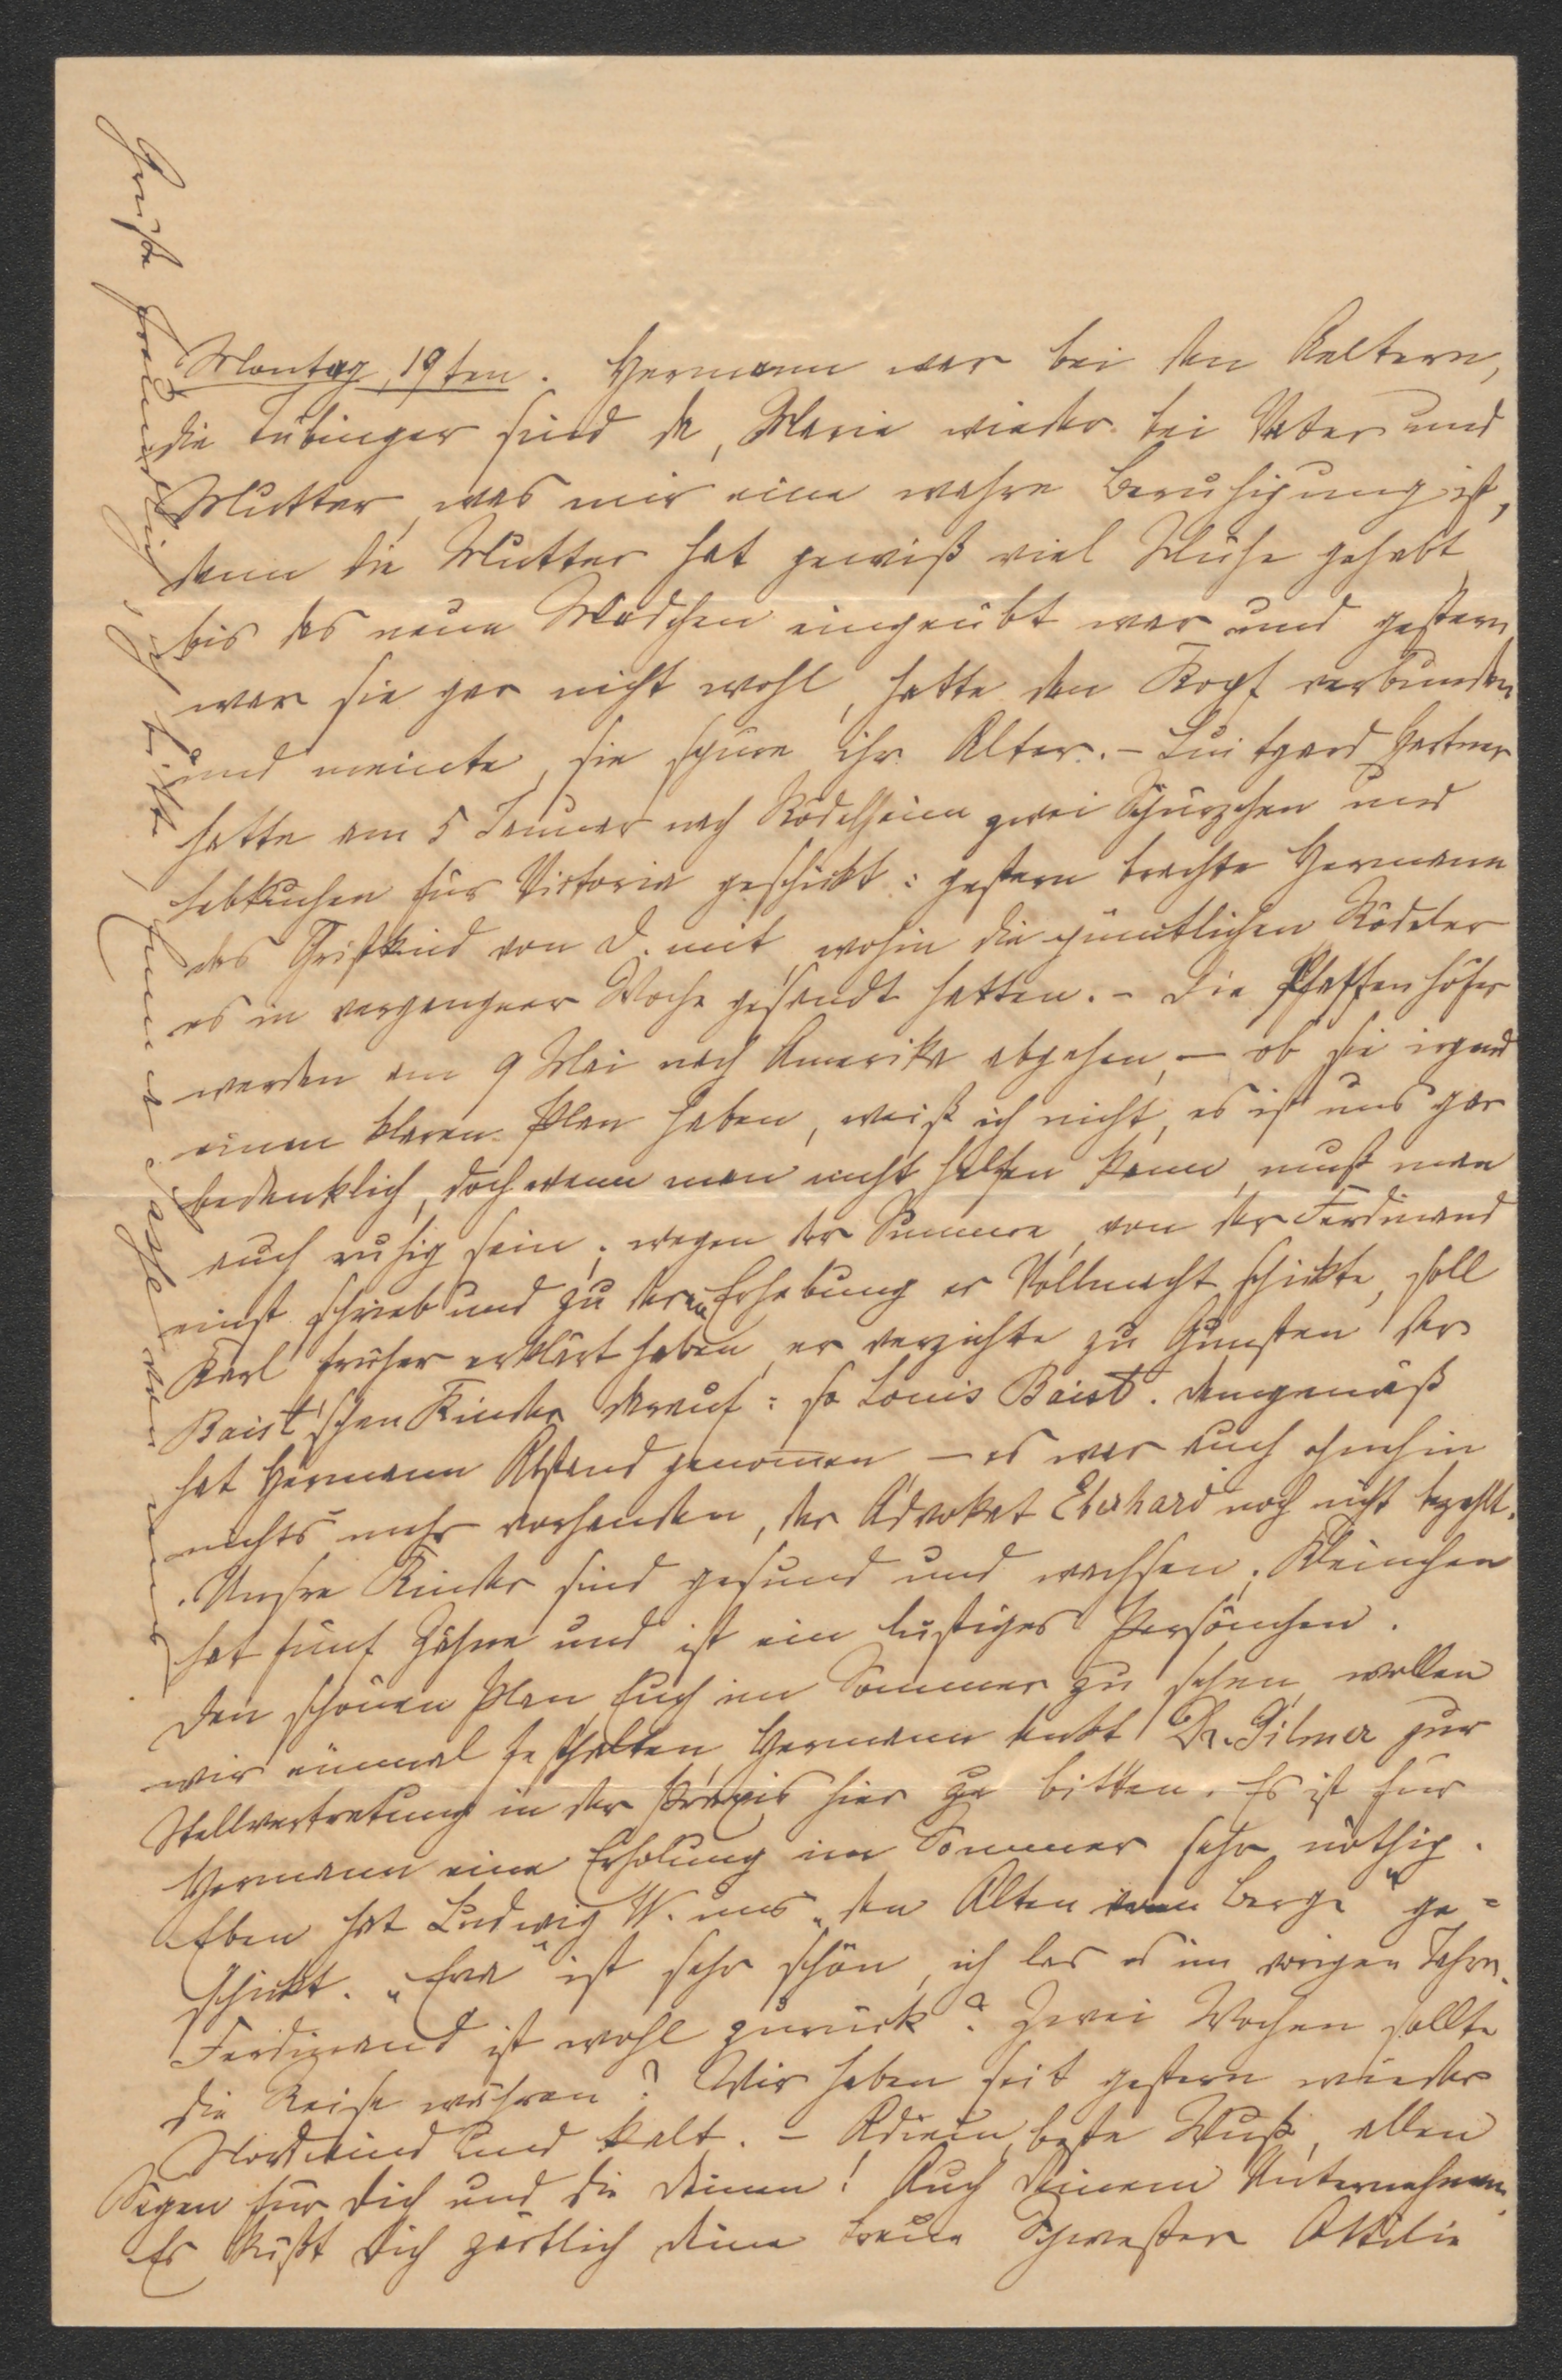 Montag, 19ten. Hermann war bei den Aeltern,
die Tübinger sind da, Marie wieder bei Vater und
Mutter, was mir eine wahre Beruhigung ist,
denn die Mutter hat gewiß viel Mühe gehabt
bis das neue Mädchen eingeübt war und gestern
war sie gar nicht wohl, hatte den Kopf verbunden
und meinte, sie spüre ihr Alter. – Luitgard Hartner
hatte am 5 Januar nach Rödelheim zwei Schürzchen und
Lebkuchen für Victoria geschickt: gestern brachte Hermann
das Christkind von D. mit, wohin die gemütlichen Rödeler
es in vergangner Woche gesandt hatten. – Die Pfaffenhöfer
werden am 9 Mai nach Amerika abgehen, – ob sie irgend
einen klaren Plan haben, weiß ich nicht, es ist uns gar
bedenklich, doch wenn man nicht helfen kann, muß man
auch ruhig sein; wegen der Summe, von der Ferdinand
einst schrieb und zu deren Erhebung er Vollmacht schickte, soll
Karl früher erklärt haben, er verzichte zu Gunsten der
Baist'schen Kinder darauf: so Louis Baist. Demgemäß
hat Hermann Abstand genommen – es war auch ohnehin
nichts mehr vorhanden, der Advokat Eberhard noch nicht bezahlt.
Unsre Kinder sind gesund und wachsen; Kleinchen
hat fünf Zähne und ist ein lustiges Persönchen.
Den schönen Plan, Euch im Sommer zu sehen, wollen
wir einmal festhalten, Hermann denkt Dr. Gilmer zur
Stellvertretung in der Praxis hier zu bitten. Es ist für
Hermann eine Erholung im Sommer sehr nöthig.
Eben hat Ludwig W. uns „den Alten vom Berge" ge=
schickt. „Eva" ist sehr schön, ich las es im vorigen Jahre.
Ferdinand ist wohl zurück? Zwei Wochen sollte
die Reise währen? Wir haben seit gestern wieder
Nordwind und kalt. – Adieu, beste Muß, allen
Segen für Dich und die Deinen! Auch Deinem Unternehmen.
Es küßt Dich zärtlich Deine treue Schwester Ottilie
Grüße freundlich, ich bitte, Emma Jasse von uns